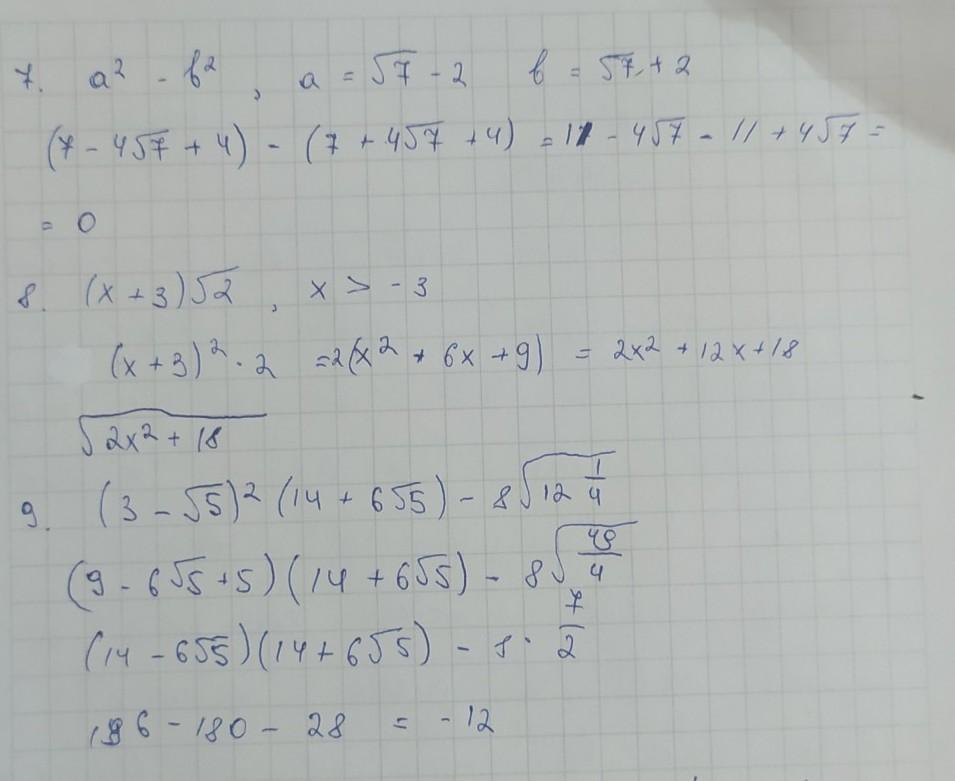 7. a² - b², a = √7 - 2 b = √7 + 2
(7 - 4√7 + 4) - (7 + 4√7 + 4) = 11 - 4√7 - 11 + 4√7 =
= 0
8. (x + 3)√2, x > -3
(x + 3)² · 2 = 2(x² + 6x + 9) = 2x² + 12x + 18
√(2x² + 18)
9. (3 - √5)² (14 + 6√5) - 8√(12 1/4)
(9 - 6√5 + 5)(14 + 6√5) - 8√(49/4)
(14 - 6√5)(14 + 6√5) - 8 · 7/2
196 - 180 - 28 = -12